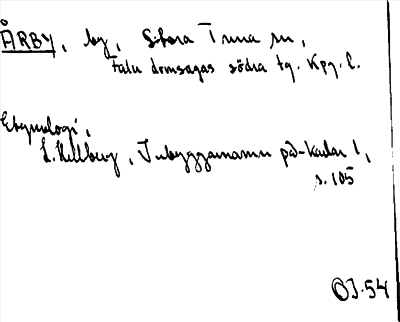 ÅRBY, by, Stora Tuna sn,
Falu domsagas södra tg. Kpg. l.
Etymologi,
L. Hellberg, Inbyggarnamn på -karlar 1,
s. 105
OJ-54